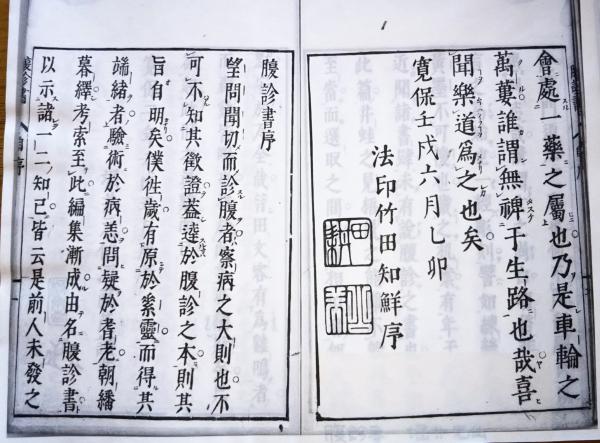 會處一藥之屬也乃是車輪之
萬蔞誰謂無裨于生路也哉喜
聞樂道為之也矣
寬保壬戌六月乙卯
法印竹田知鮮序
腹診書序
望問聞切而診腹者察病之大則也不
可不知其徵證益達於腹診之本則其
旨自明矣僕徃歲有原於素靈而得其
端緒者驗術於病恙問疑於耆老朝繙
暮繹考索至此編集漸成由名腹診書
以示諸一二知己皆云是前人未發之
腹診書 自序